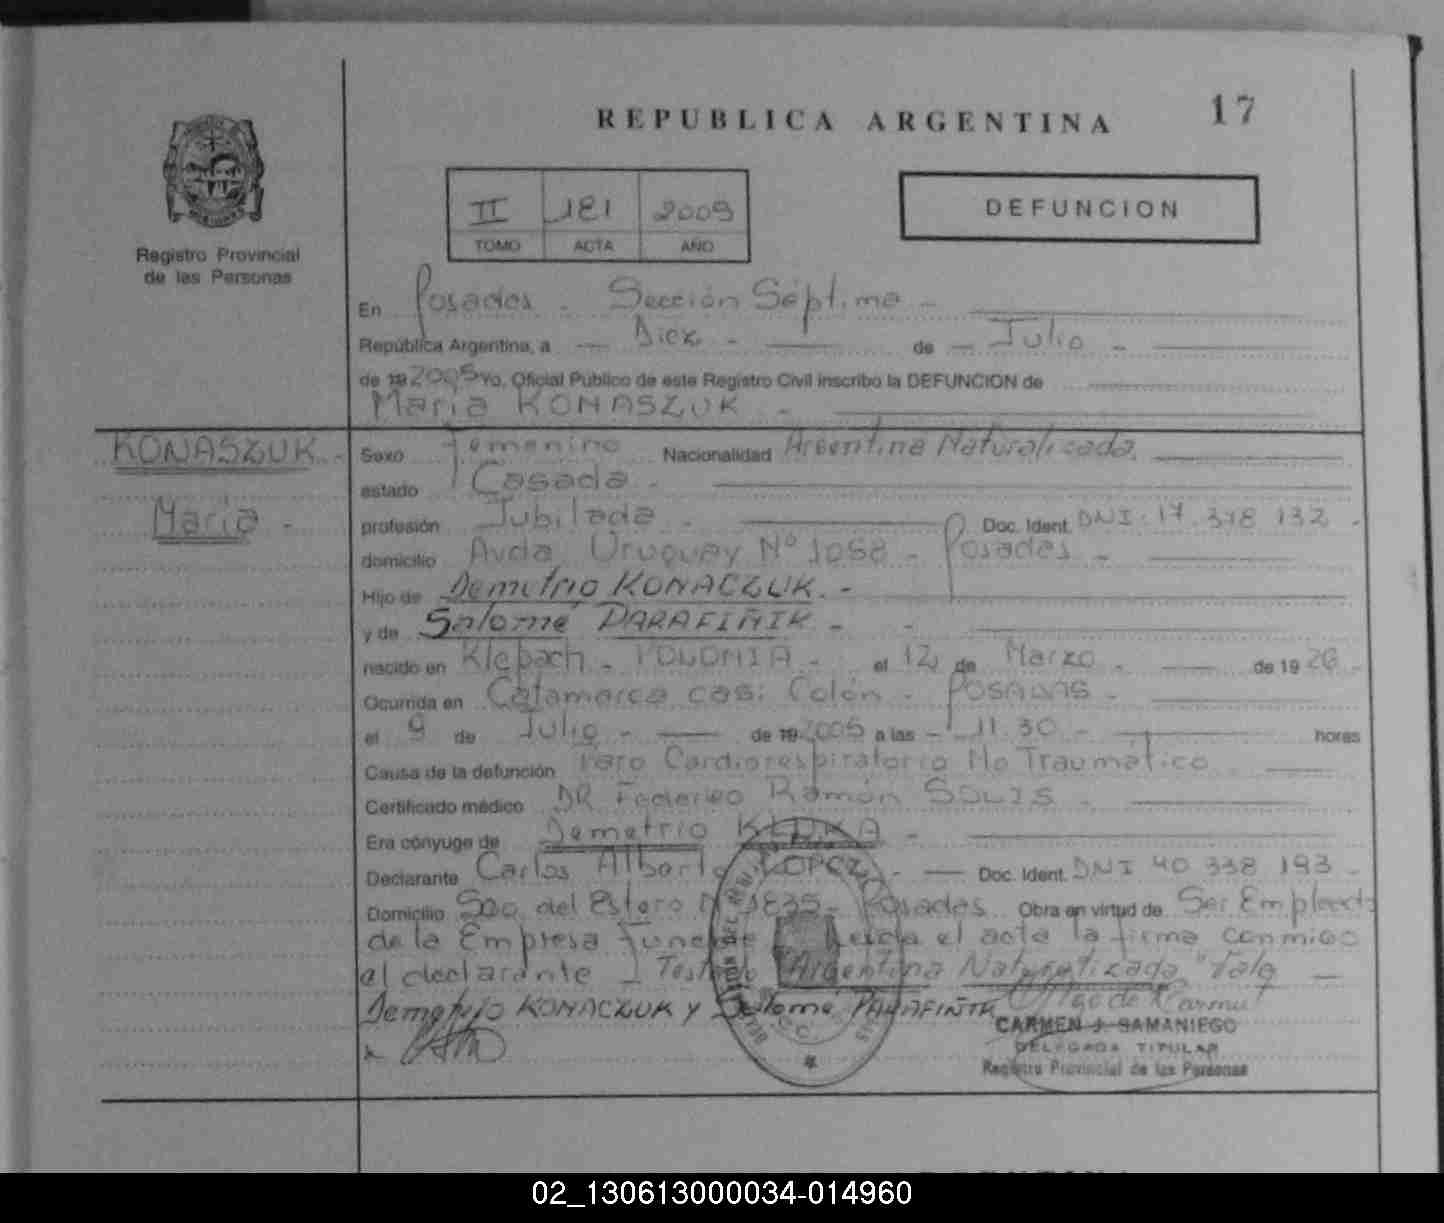 17
REPUBLICA ARGENTINA
Registro Provincial
de las Personas
II 181 2009
TOMO ACTA AÑO
DEFUNCION
En Posadas - Sección Séptima -
República Argentina, a - Diez - de - Julio -
de 19 2009 Yo, Oficial Público de este Registro Civil inscribo la DEFUNCION de
Maria KONASZUK -
KONASZUK -
Maria -
Sexo Femenino Nacionalidad Argentina Naturalizada
estado Casada -
profesión Jubilada - Doc. Ident. DNI. 17.378 132 -
domicilio Avda Uruguay Nº 1058 - Posadas -
Hijo de Demetrio KONACZUK. -
y de Salomé PARAFIÑIK -
nacido en Klebach - POLONIA - el 12 de Marzo - de 19 26 -
Ocurrida en Catamarca casi Colón - POSADAS -
el 9 de Julio - de 19 2009 a las - 11.30 - horas
Causa de la defunción Paro Cardiorespiratorio No Traumático
Certificado médico DR Federico Ramón SOLIS -
Era cónyuge de Demetrio -
Declarante Carlos Alberto LOPEZ - Doc. Ident. DNI 40 338 193 -
Domicilio Sgo. del Estero Nº 1835 - Posadas Obra en virtud de Ser Empleado
de la Empresa Funebre Leida el acta la firma conmigo
el declarante - Testado "Argentina Naturalizada" Vale -
Demetrio KONACZUK y Salomé PARAFIÑIK
CARMEN J. SAMANIEGO
DELEGADA TITULAR
Registro Provincial de las Personas
02_130613000034-014960